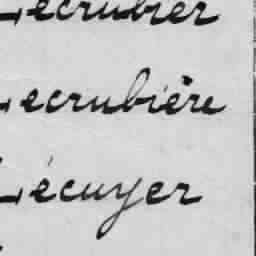 Lecrubier
Lecrubière
Lécuyer